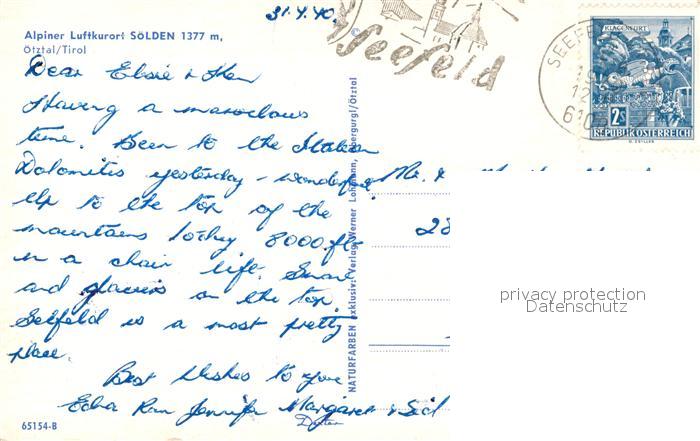 31.4.40.
Alpiner Luftkurort SÖLDEN 1377 m,
Ötztal/Tirol
Seefeld
SEEFE
12
610
KLAGENFURT
2S
REPUBLIK ÖSTERREICH
Dear Elsie & Ken
Having a marvelous
time. Been to the Italian
Dolomites yesterday - wonderful
Up to the top of the
mountains today 8000 ft
in a chair lift. Snow
and glaciers on the top.
Seefeld is a most pretty
place.
Best Wishes to you
Edna Ron Jennifer Margaret & Sid
Mr. &
28
NATURFARBEN exklusiv: Verlag Werner Lohmann, Obergurgl/Ötztal
privacy protection
Datenschutz
65154-B